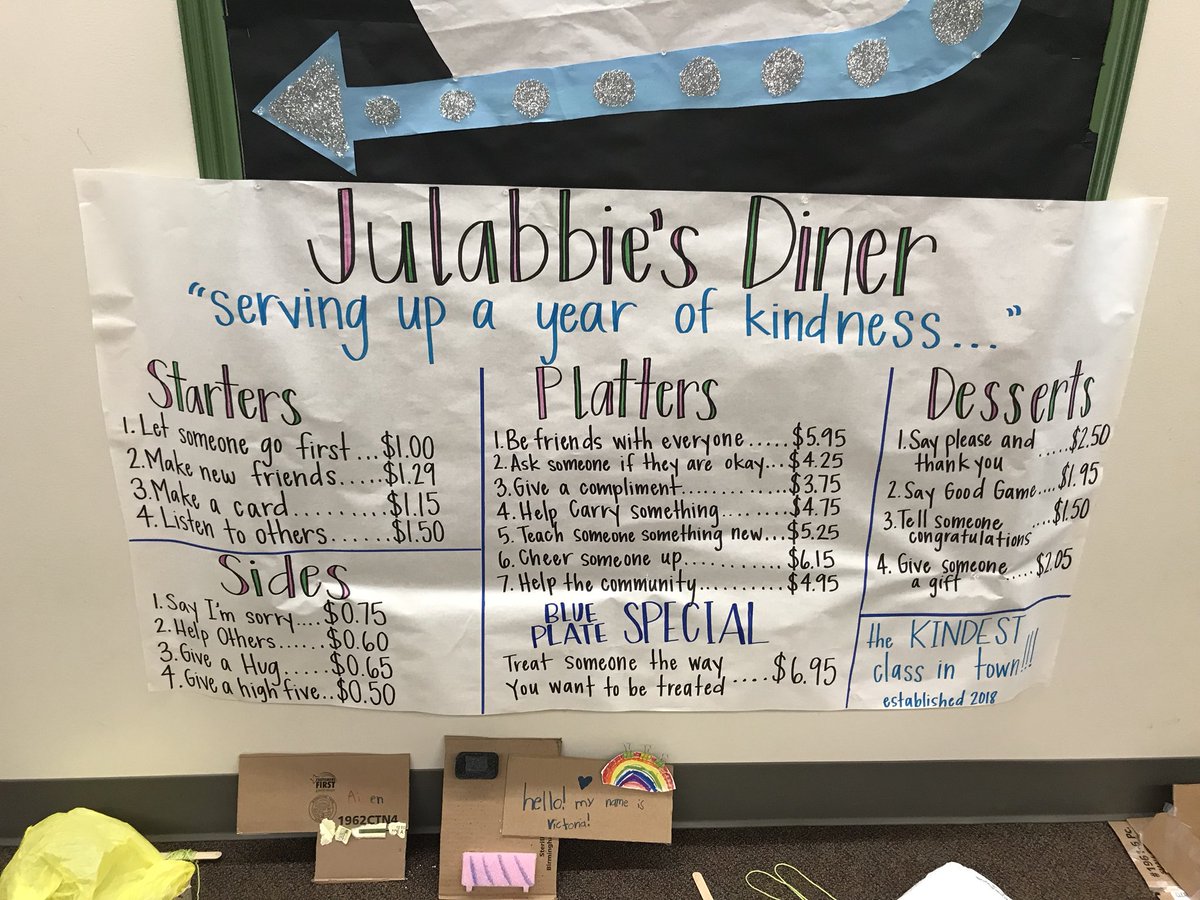 Julabbie's Diner
"serving up a year of kindness..."
Starters
1. Let someone go first...$1.00
2. Make new friends.....$1.29
3. Make a card.........$1.15
4. Listen to others......$1.50
Sides
1. Say I'm sorry....$0.75
2. Help Others.....$0.60
3. Give a Hug......$0.65
4. Give a high five..$0.50
Platters
1. Be friends with everyone.....$5.95
2. Ask someone if they are okay...$4.25
3. Give a compliment...........$3.75
4. Help Carry something.......$4.75
5. Teach someone something new...$5.25
6. Cheer someone up..........$6.15
7. Help the community..........$4.95
BLUE
PLATE SPECIAL
Treat someone the way
You want to be treated ....$6.95
Desserts
1. Say please and .....$2.50
thank you
2. Say Good Game....$1.95
3. Tell someone ....$1.50
congratulations
4. Give someone .....$2.05
a gift
the KINDEST
class in town!!!
established 2018
FIRST
1962CTN4
hello! my name is
Victoria!